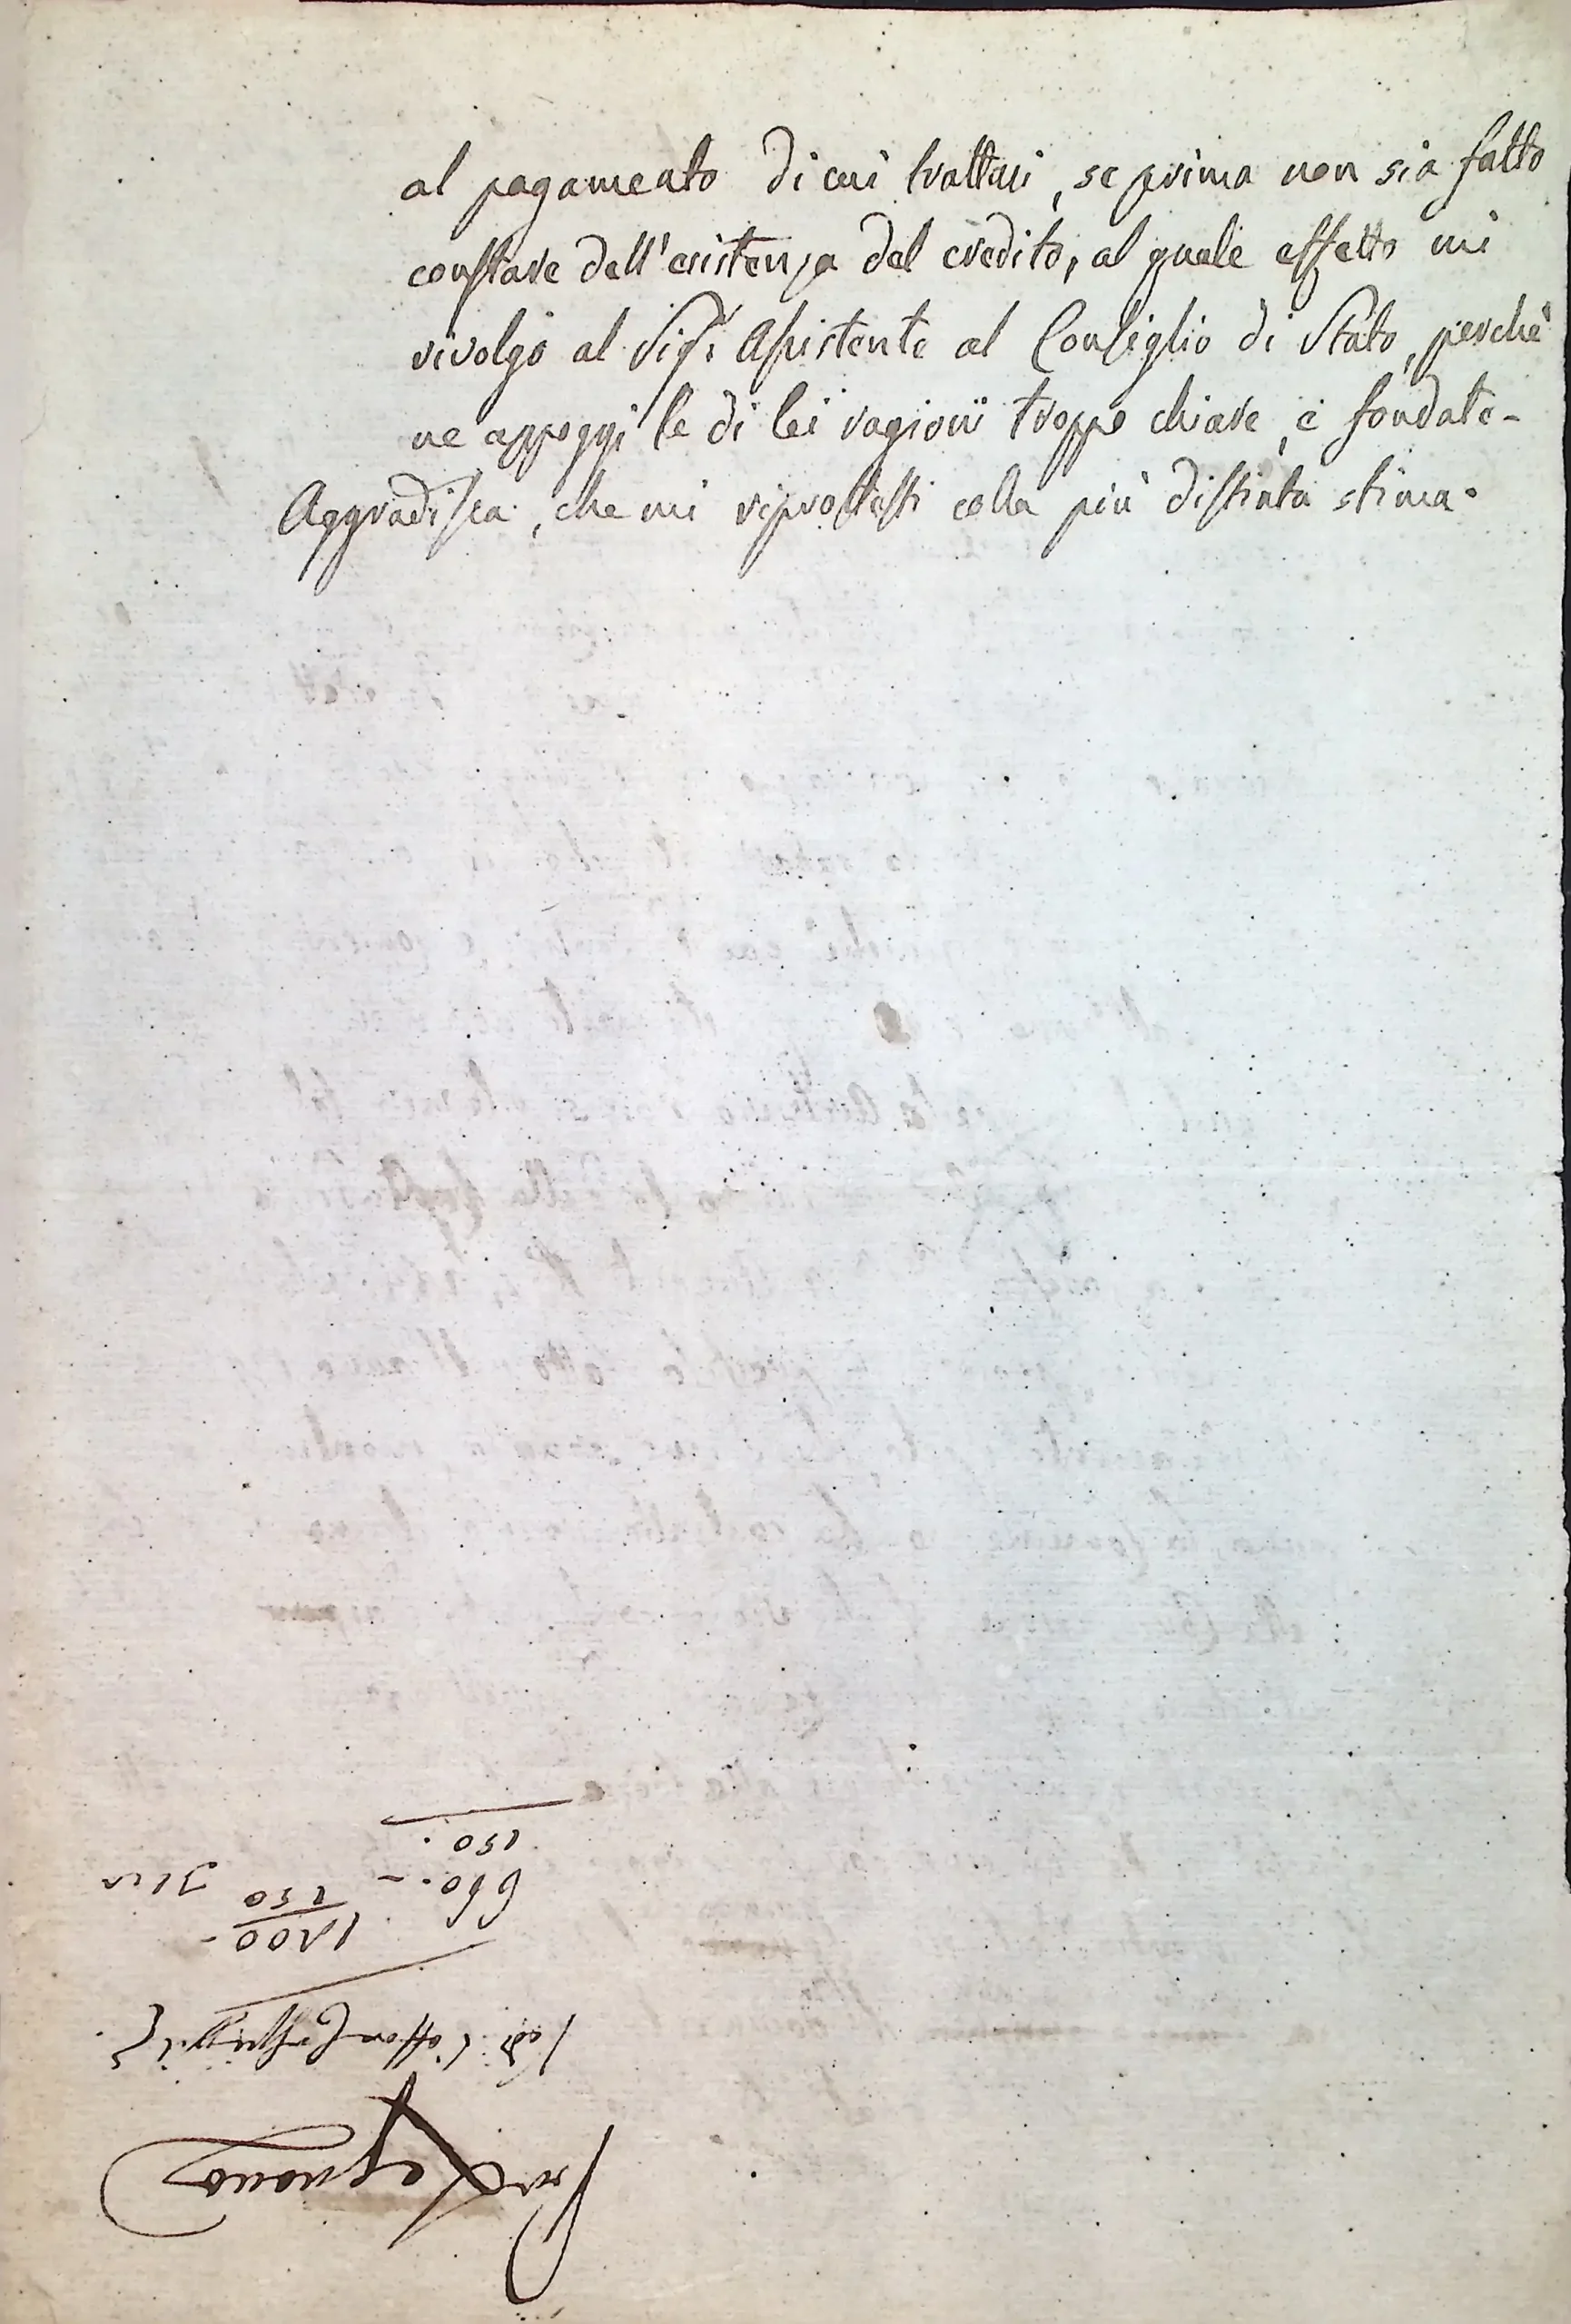 al pagamento di cui trattasi, se prima non sia fatto
constare dell'esistenza del credito, al quale effetto mi
rivolgo al Sig.r Assistente al Consiglio di Stato, perchè
ne appoggi le di lei ragioni troppo chiare, e fondate-
Aggradisca, che mi riprotesti colla più distinta stima.
Legnano
1200-
250
660.-
150.